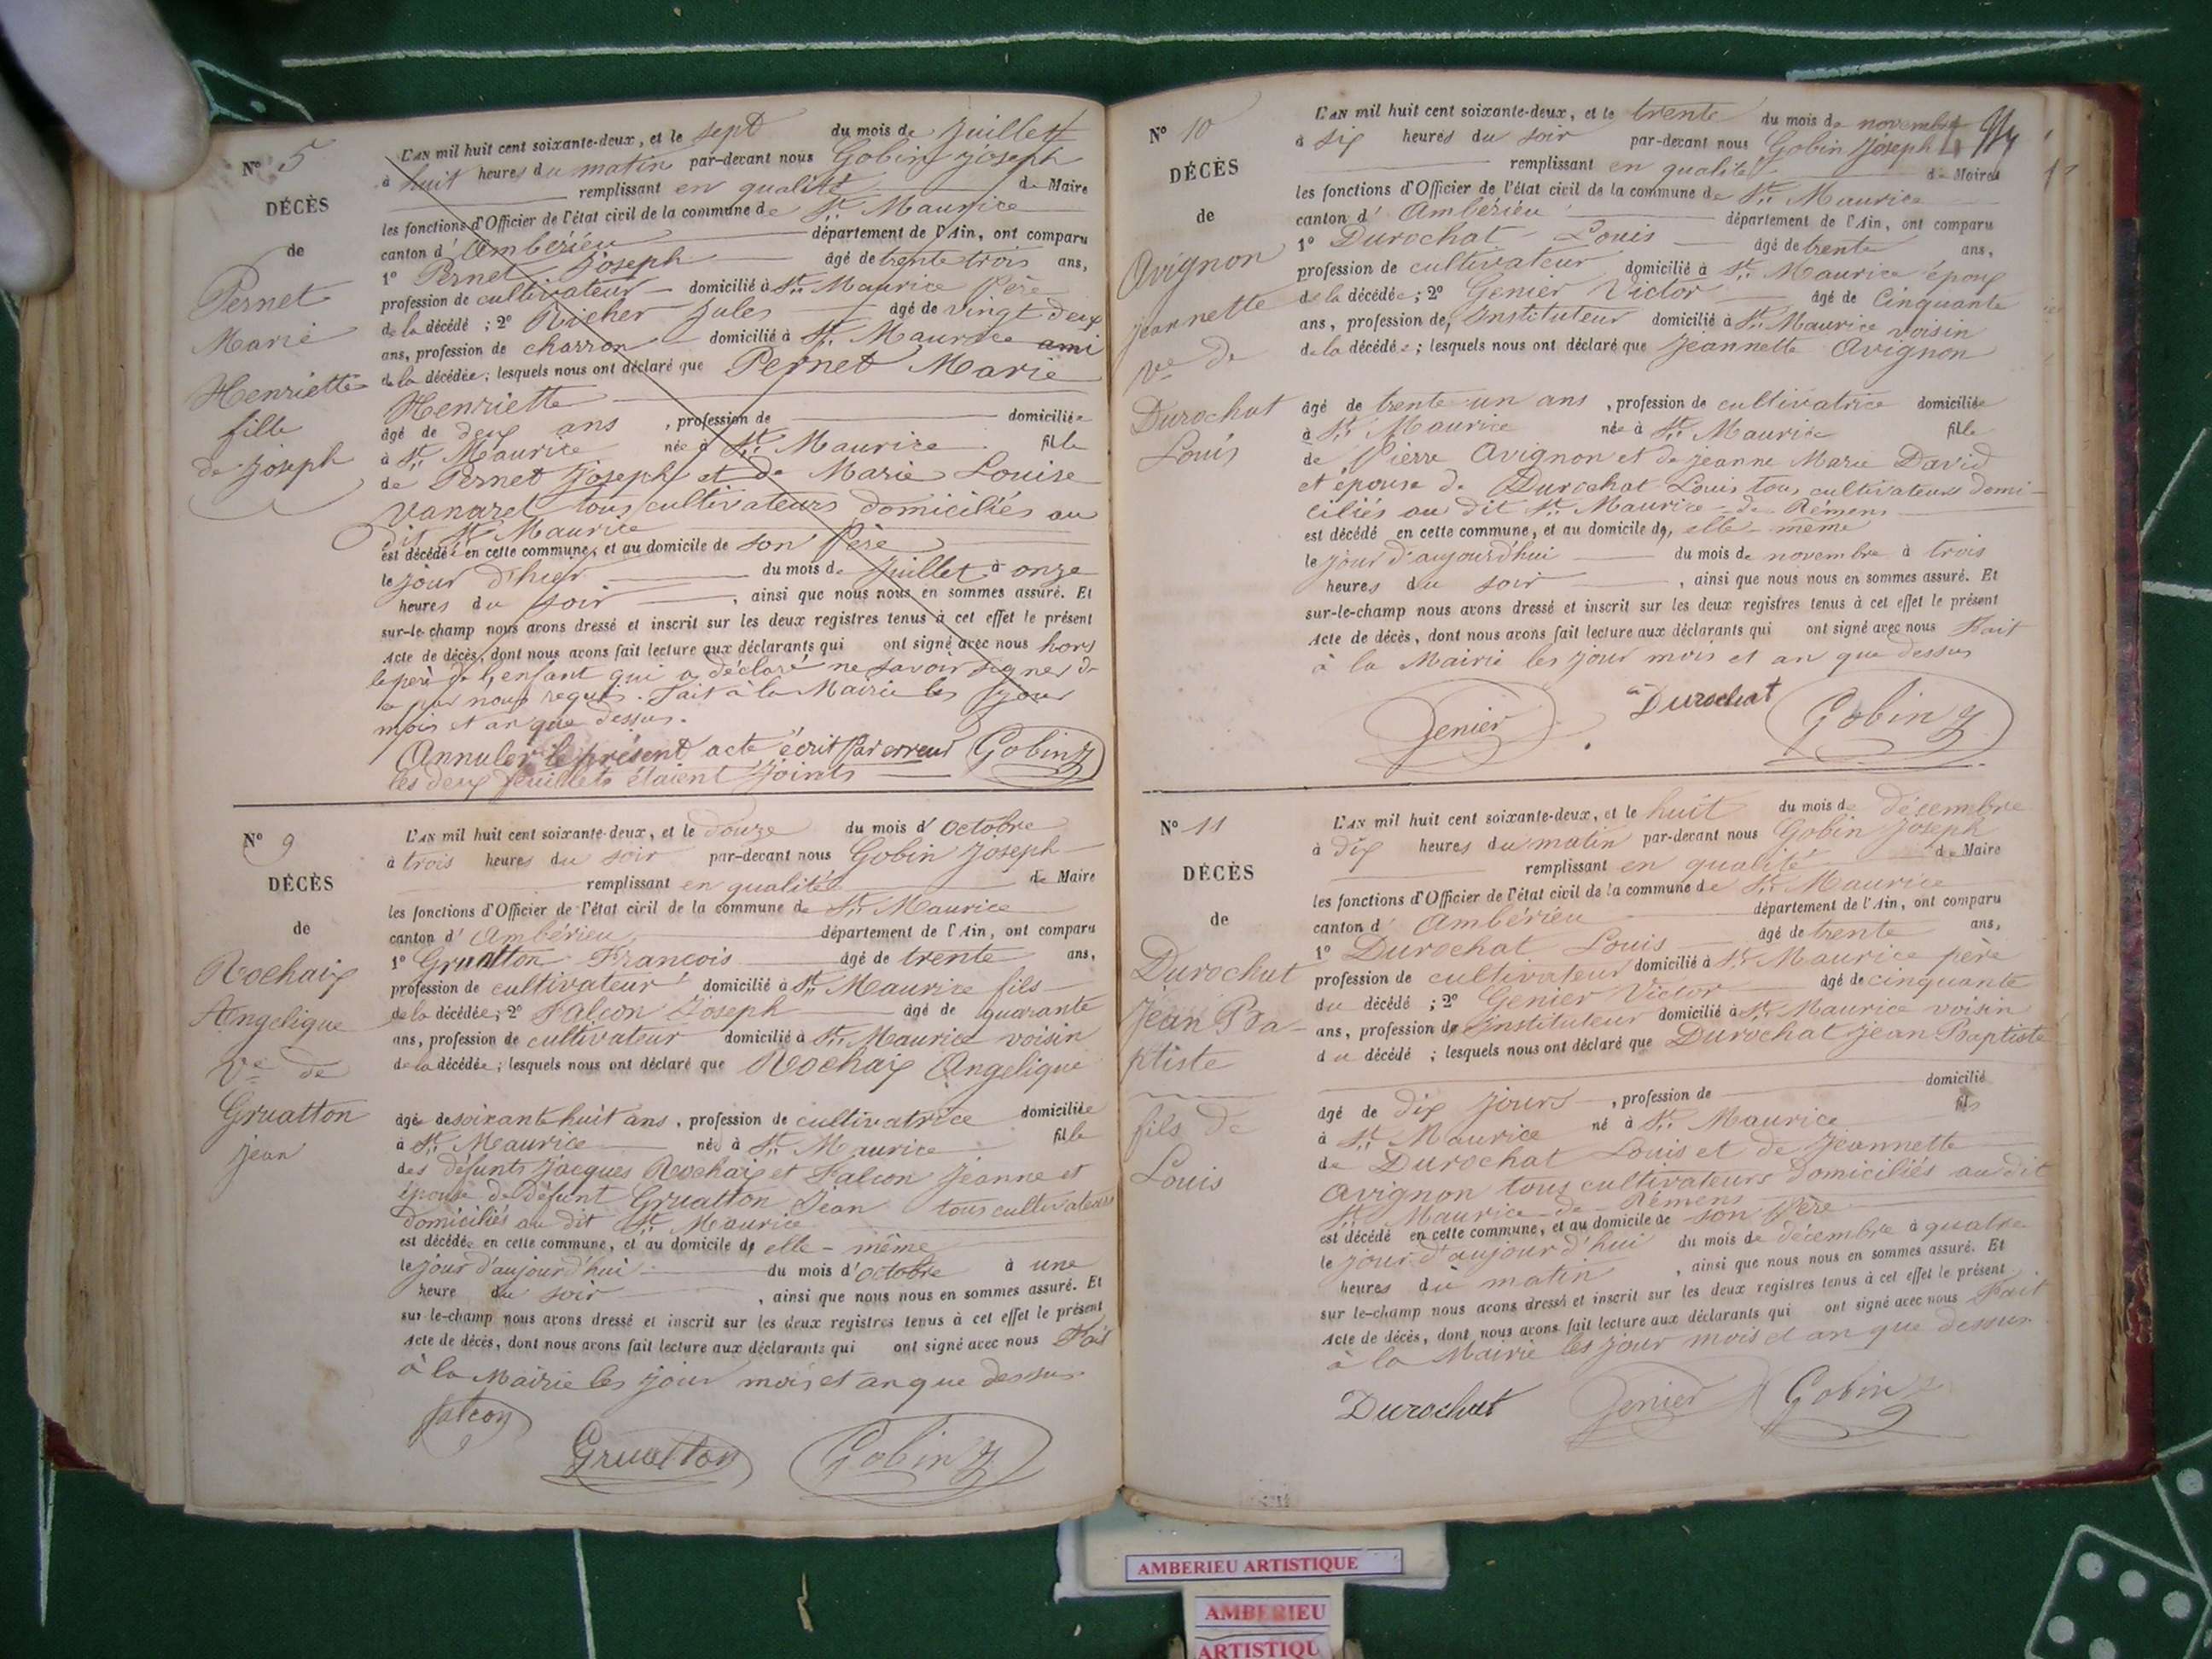 N° 5
DÉCÈS
de
Pernet
Marie
Henriette
fille
de Joseph
L'AN mil huit cent soixante-deux, et le sept du mois de Juillet
à huit heures du matin par-devant nous Gobin Joseph
remplissant en qualité de Maire
les fonctions d'Officier de l'état civil de la commune de St Maurice
canton d' Ambérieu département de l'Ain, ont comparu
1° Pernet Joseph âgé de trente trois ans,
profession de cultivateur domicilié à St Maurice Père
de la décédé ; 2° Richer Jules âgé de vingt deux
ans, profession de charron domicilié à St Maurice ami
de la décédée ; lesquels nous ont déclaré que Pernet Marie
Henriette
âgé de deux ans , profession de domiciliée
à St Maurice née à St Maurice fille
de Pernet Joseph et de Marie Louise
Vanarel tous cultivateurs domiciliés au
dit St Maurice
est décédée en cette commune, et au domicile de son Père
le jour d'hier du mois de Juillet à onze
heures du soir , ainsi que nous nous en sommes assuré. Et
sur-le-champ nous avons dressé et inscrit sur les deux registres tenus à cet effet le présent
Acte de décès, dont nous avons fait lecture aux déclarants qui ont signé avec nous hors
le père de l'enfant qui a déclaré ne savoir signer de
ce par nous requis. Fait à la Mairie les jour
mois et an que dessus.
Annuler le présent acte écrit Par erreur Gobin J
les deux feuillets étaient joints
N° 9
DÉCÈS
de
Rochaix
Angelique
Ve de
Gruatton
Jean
L'AN mil huit cent soixante-deux, et le douze du mois d' Octobre
à trois heures du soir par-devant nous Gobin Joseph
remplissant en qualité de Maire
les fonctions d'Officier de l'état civil de la commune de St Maurice
canton d' Ambérieu département de l'Ain, ont comparu
1° Gruatton Francois âgé de trente ans,
profession de cultivateur domicilié à St Maurice fils
de la décédée ; 2° Falcon Joseph âgé de quarante
ans, profession de cultivateur domicilié à St Maurice voisin
de la décédée ; lesquels nous ont déclaré que Rochaix Angelique
âgé de soixante huit ans , profession de cultivatrice domiciliée
à St Maurice née à St Maurice fille
des défunts Jacques Rochaix et Falcon Jeanne et
épouse de Défunt Gruatton Jean tous cultivateurs
domiciliés au dit St Maurice
est décédée en cette commune, et au domicile de elle-même
le jour d'aujourd'hui du mois d'octobre à une
heure du soir , ainsi que nous nous en sommes assuré. Et
sur-le-champ nous avons dressé et inscrit sur les deux registres tenus à cet effet le présent
Acte de décès, dont nous avons fait lecture aux déclarants qui ont signé avec nous Fait
à la Mairie les jour mois et an que dessus
falcon
Gruatton Gobin J
N° 10
DÉCÈS
de
Avignon
jeannette
ve de
Durochat
Louis
L'AN mil huit cent soixante-deux, et le trente du mois de novembre
à six heures du soir par-devant nous Gobin Joseph
remplissant en qualité de Maire
les fonctions d'Officier de l'état civil de la commune de St Maurice
canton d' Ambérieu département de l'Ain, ont comparu
1° Durochat Louis âgé de trente ans,
profession de cultivateur domicilié à St Maurice époux
de la décédée ; 2° Genier Victor âgé de Cinquante
ans, profession de Instituteur domicilié à St Maurice voisin
de la décédée ; lesquels nous ont déclaré que Jeannette Avignon
âgé de trente un ans , profession de cultivatrice domiciliée
à St Maurice née à St Maurice fille
de Pierre Avignon et de Jeanne Marie David
et épouse de Durochat Louis tous cultivateurs domi-
ciliés au dit St Maurice-de-Rémens
est décédé en cette commune, et au domicile de elle-même
le jour d'aujourd'hui du mois de novembre à trois
heures du soir , ainsi que nous nous en sommes assuré. Et
sur-le-champ nous avons dressé et inscrit sur les deux registres tenus à cet effet le présent
Acte de décès, dont nous avons fait lecture aux déclarants qui ont signé avec nous Fait
à la Mairie les jour mois et an que dessus
Genier Durochat Gobin J
N° 11
DÉCÈS
de
Durochat
Jean Ba-
ptiste
fils de
Louis
L'AN mil huit cent soixante-deux, et le huit du mois de décembre
à dix heures du matin par-devant nous Gobin Joseph
remplissant en qualité de Maire
les fonctions d'Officier de l'état civil de la commune de St Maurice
canton d' Ambérieu département de l'Ain, ont comparu
1° Durochat Louis âgé de trente ans,
profession de cultivateur domicilié à St Maurice père
du décédé ; 2° Genier Victor âgé de cinquante
ans, profession de Instituteur domicilié à St Maurice voisin
du décédé ; lesquels nous ont déclaré que Durochat Jean Baptiste
âgé de dix jours , profession de domicilié
à St Maurice né à St Maurice fils
de Durochat Louis et de Jeannette
Avignon tous cultivateurs domiciliés au dit
St Maurice-de-Rémens
est décédé en cette commune, et au domicile de son Père
le jour d'aujourd'hui du mois de décembre à quatre
heures du matin , ainsi que nous nous en sommes assuré. Et
sur le-champ nous avons dressé et inscrit sur les deux registres tenus à cet effet le présent
Acte de décès, dont nous avons fait lecture aux déclarants qui ont signé avec nous Fait
à la Mairie les jour mois et an que dessus
Durochat Genier Gobin J
AMBERIEU ARTISTIQUE
AMBERIEU
ARTISTIQU